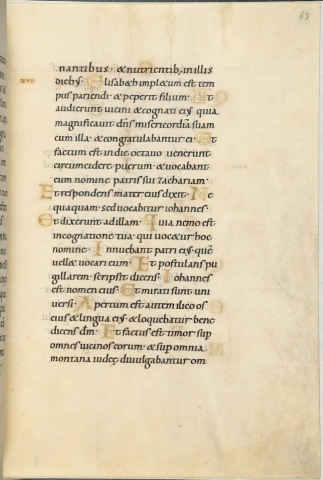 73
nantibus · & nutrientib; in illis
xvii dieb; · Elisab&h impl&um est tem
pus pariendi · & peperit filium · Et
audierunt uicini & cognati ei; quia
magnificauit dñs misericordiā suam
cum illa · & congratulabantur ei · Et
factum est in die octauo uenerunt
circumcidere puerum · & uocabant
eum nomine patris sui zachariam ·
Et respondens mater eius dixit · Ne
quaquam · sed uocabitur iohannes ·
Et dixerunt ad illam · Quia nemo est
in cognatione tua · qui uoc&ur hoc
nomine · Innuebant patri ei; · quē
uell& uocari eum · Et postulans pu
gillarem · scripsit dicens · Iohannes
est nomen eius · Et mirati sunt uni
uersi · Apertum est autem ilico os
eius & lingua ei; & loquebatur bene
dicens dm · Et factus est timor sup
omnes uicinos eorum · & sup omnia
montana iudeę diuulgabantur om